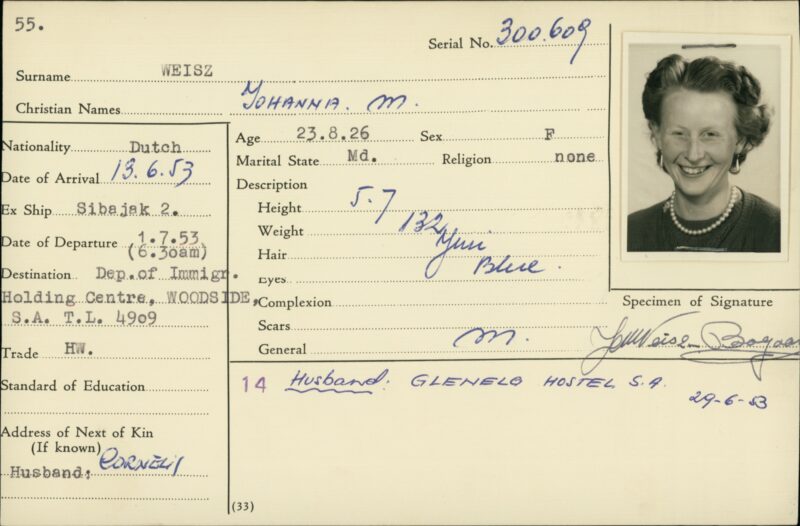 55.
Serial No. 300.609
Surname WEISZ
Christian Names JOHANNA. M.
Nationality Dutch
Date of Arrival 13.6.53
Ex Ship Sibajak 2.
Date of Departure 1.7.53
(6.30am)
Destination Dep.of Immigr.
Holding Centre, WOODSIDE,
S.A. T.L. 4909
Trade HW.
Standard of Education
Address of Next of Kin
(If known)
Husband: CORNELIS
Age 23.8.26 Sex F
Marital State Md. Religion none
Description
Height 5-7
Weight 132
Hair
Eyes Blue.
Complexion
Scars
General M.
Specimen of Signature
14 Husband: GLENELG HOSTEL S.A.
29-6-53
(33)